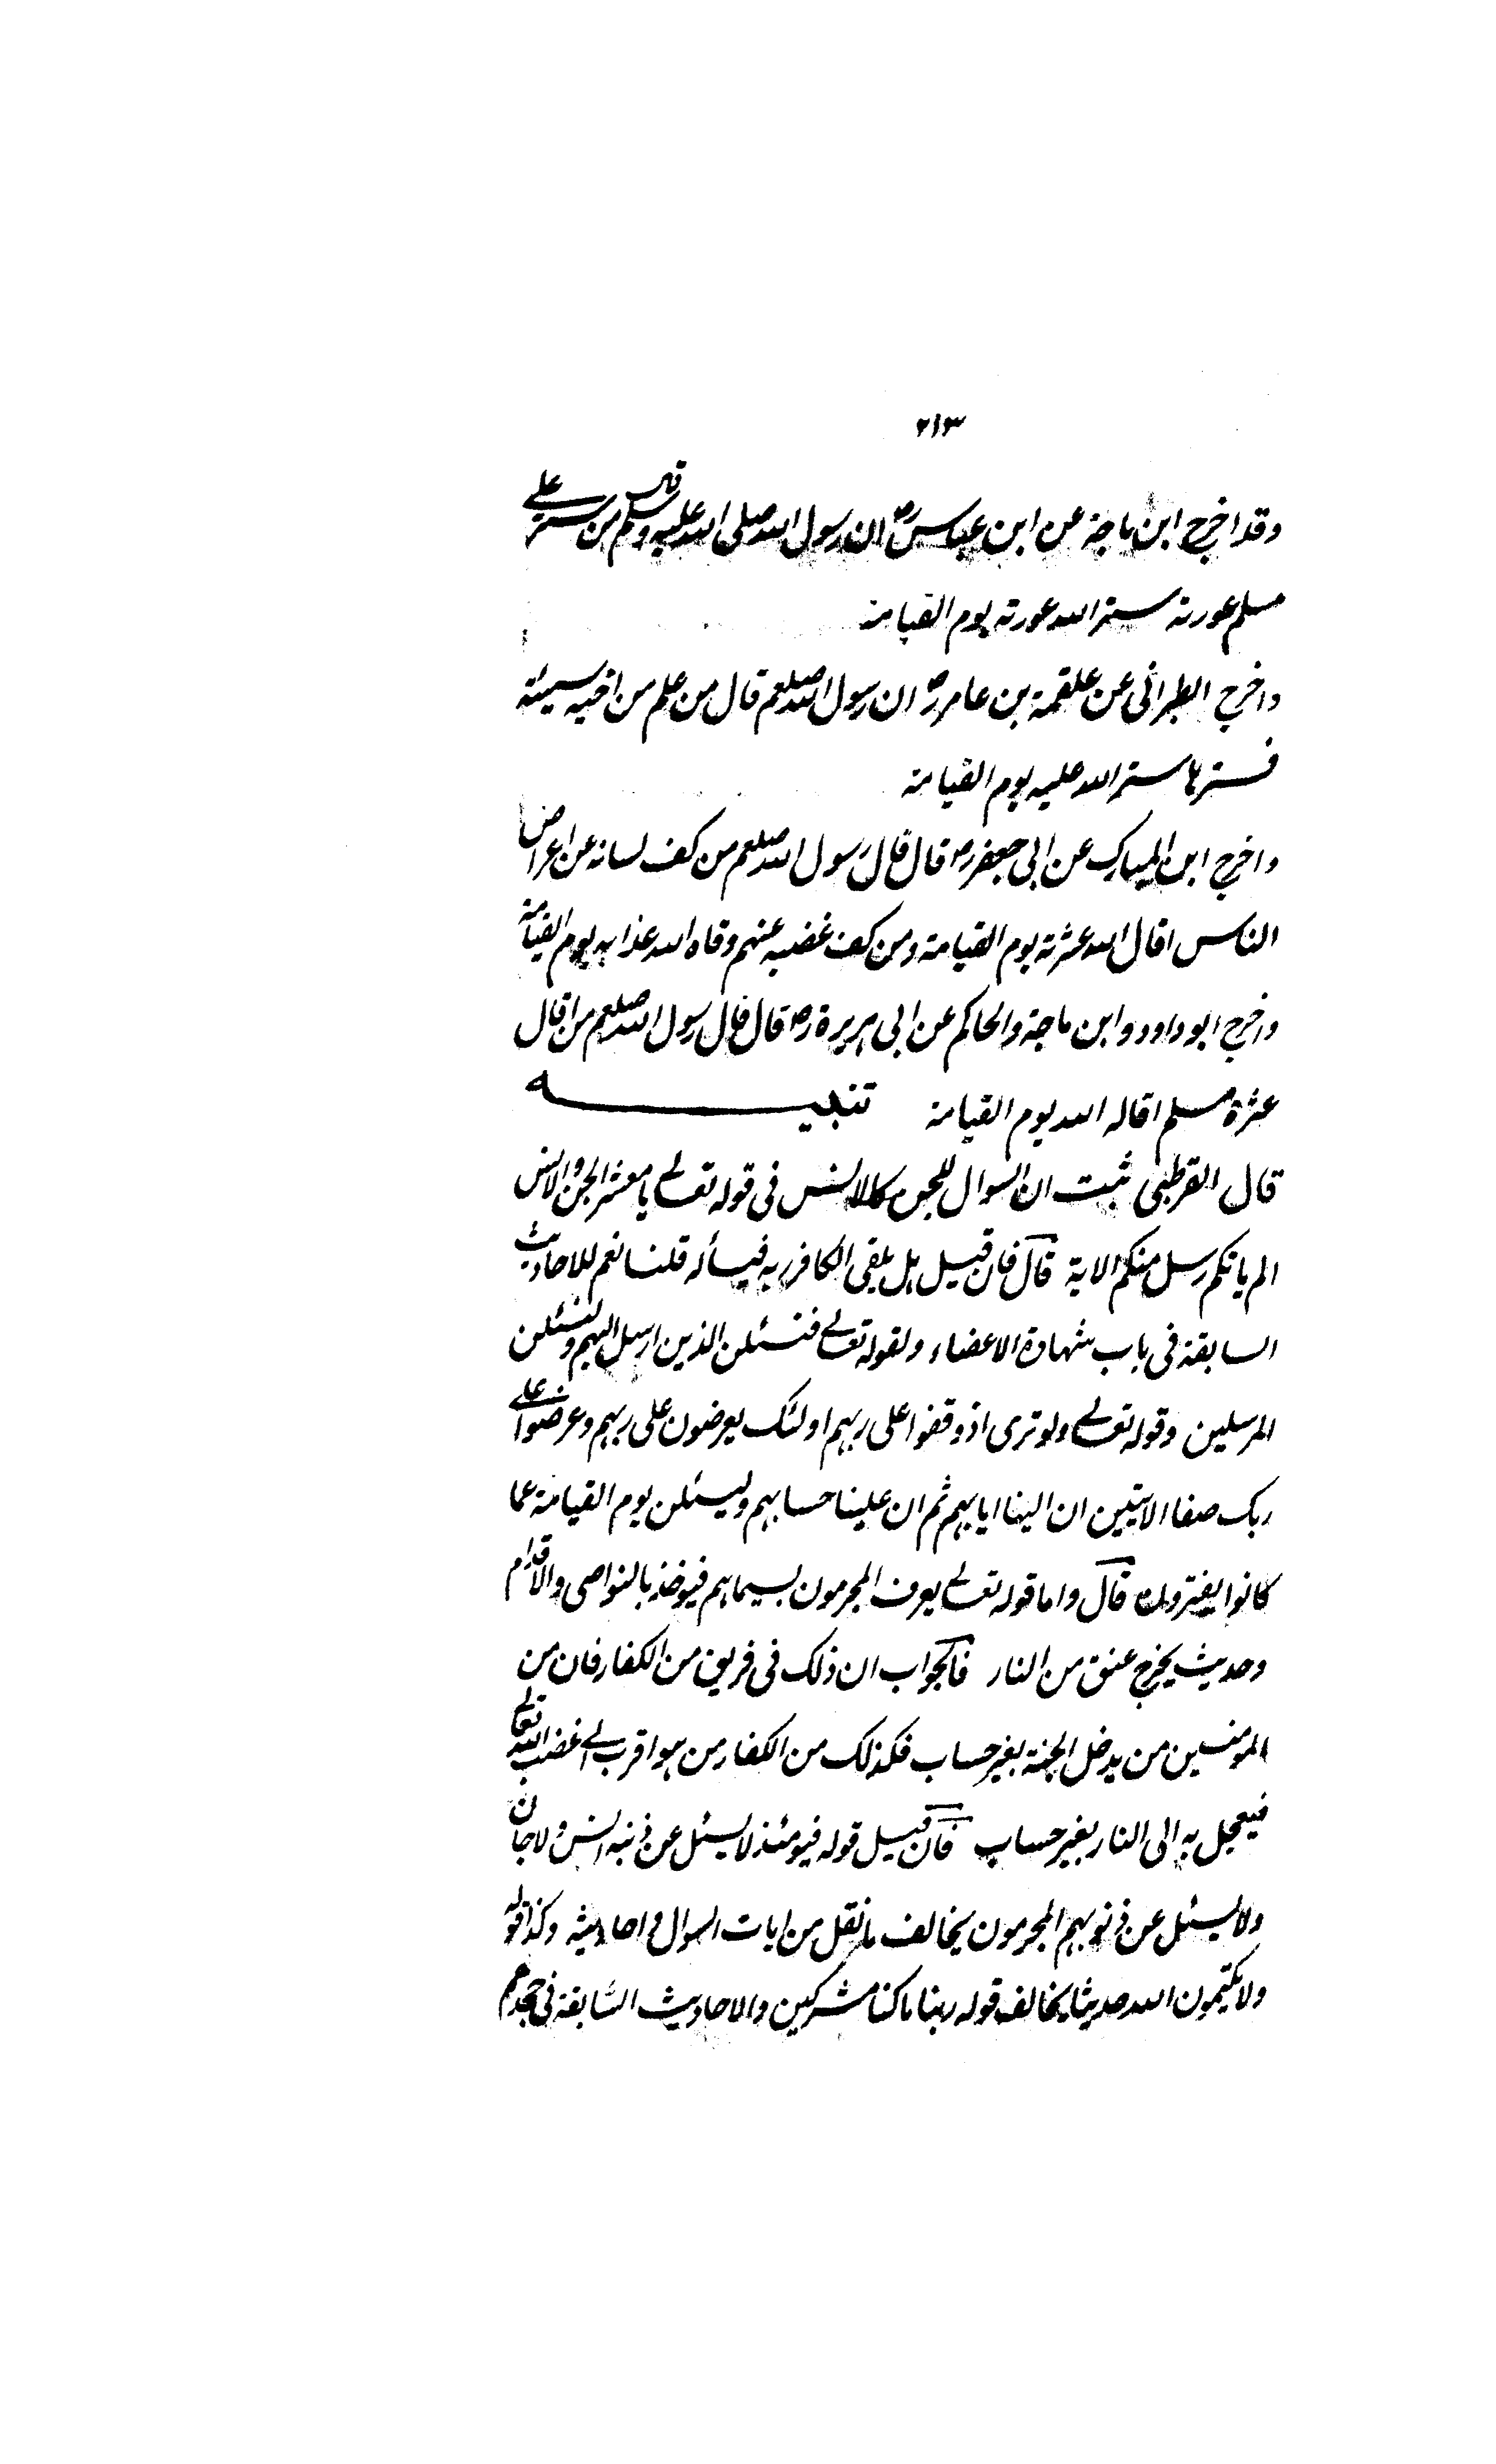 ٢١٣
وقد اخرج ابن ماجة عن ابن عباس رض ان رسول الله صلى الله عليه وسلم قال من ستر على
مسلم عورته ستر الله عورته يوم القيامة
واخرج الطبرانى عن علقمة بن عامر رض ان رسول الله صلعم قال من علم من اخيه سيئة
فسترها ستر الله عليه يوم القيامة
واخرج ابن المبارك عن ابى جعفر رض قال قال رسول الله صلعم من كف لسانه عن اعراض
الناس اقال الله عثرته يوم القيامة ومن كف غضبه عنهم وقاه الله عذابه يوم القيامة
واخرج ابو داود وابن ماجة والحاكم عن ابى هريرة رض قال قال رسول الله صلعم من اقال
عثرة مسلم اقاله الله يوم القيامة تنبيه
قال القرطبى ثبت ان السوال للجن كالانس فى قوله تعالى يا معشر الجن والانس
الم ياتكم رسل منكم الاية قال فان قيل هل يلقى الكافر ربه فيسأله قلنا نعم للاحاديث
السابقة فى باب شهادة الاعضاء ولقوله تعالى فنسئلن الذين ارسل اليهم ولنسئلن
المرسلين وقوله تعالى ولو ترى اذ وقفوا على ربهم اولئك يعرضون على ربهم وعرضوا على
ربك صفا الايتين ان الينا ايابهم ثم ان علينا حسابهم وليسئلن يوم القيامة عما
كانوا يفترون قال واما قوله تعالى يعرف المجرمون بسيماهم فيوخذ بالنواصى والاقدام
وحديث يخرج عنق من النار فالجواب ان ذلك فى فريق من الكفار فان من
المومنين من يدخل الجنة بغير حساب فكذلك من الكفار من هو اقرب الى غضب الله تعالى
فيعجل به الى النار بغير حساب فان قيل قوله فيومئذ لا يسئل عن ذنبه انس ولا جان
ولا يسئل عن ذنوبهم المجرمون يخالف ما نقل من ايات السوال و احاديثه وكذا قوله
ولا يكتمون الله حديثا يخالف قوله ربنا ما كنا مشركين والاحاديث السابقة فى جحدهم